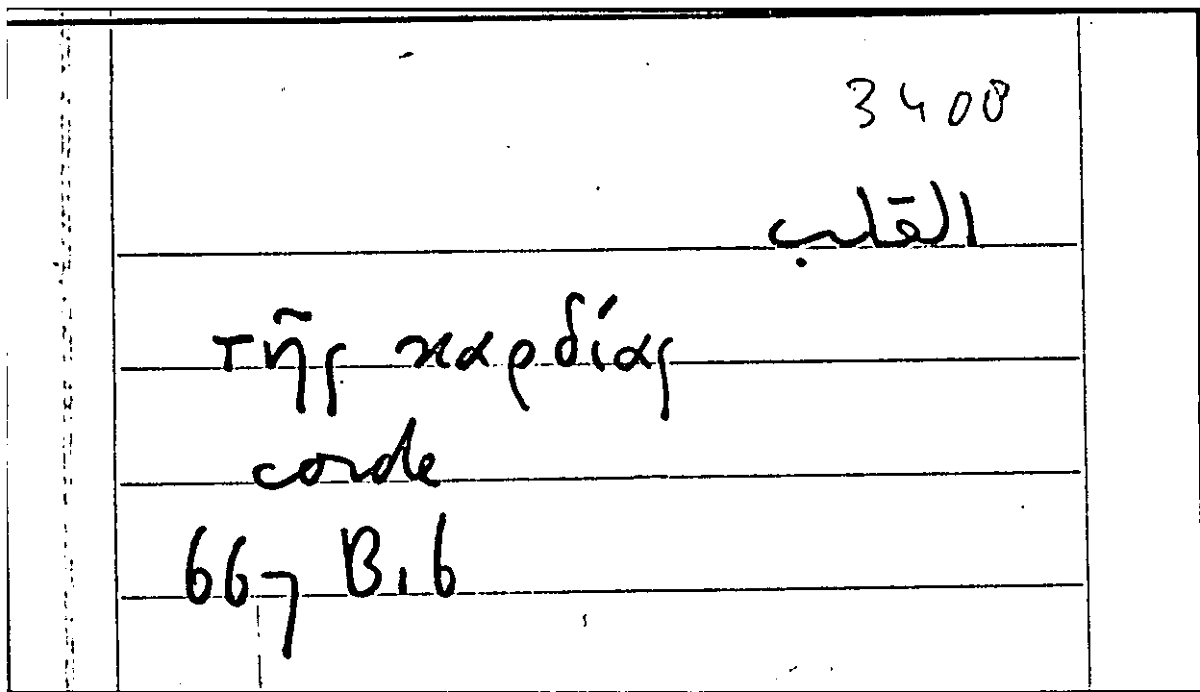 3408
القلب
τῆς καρδίας
corde
667 B, 6